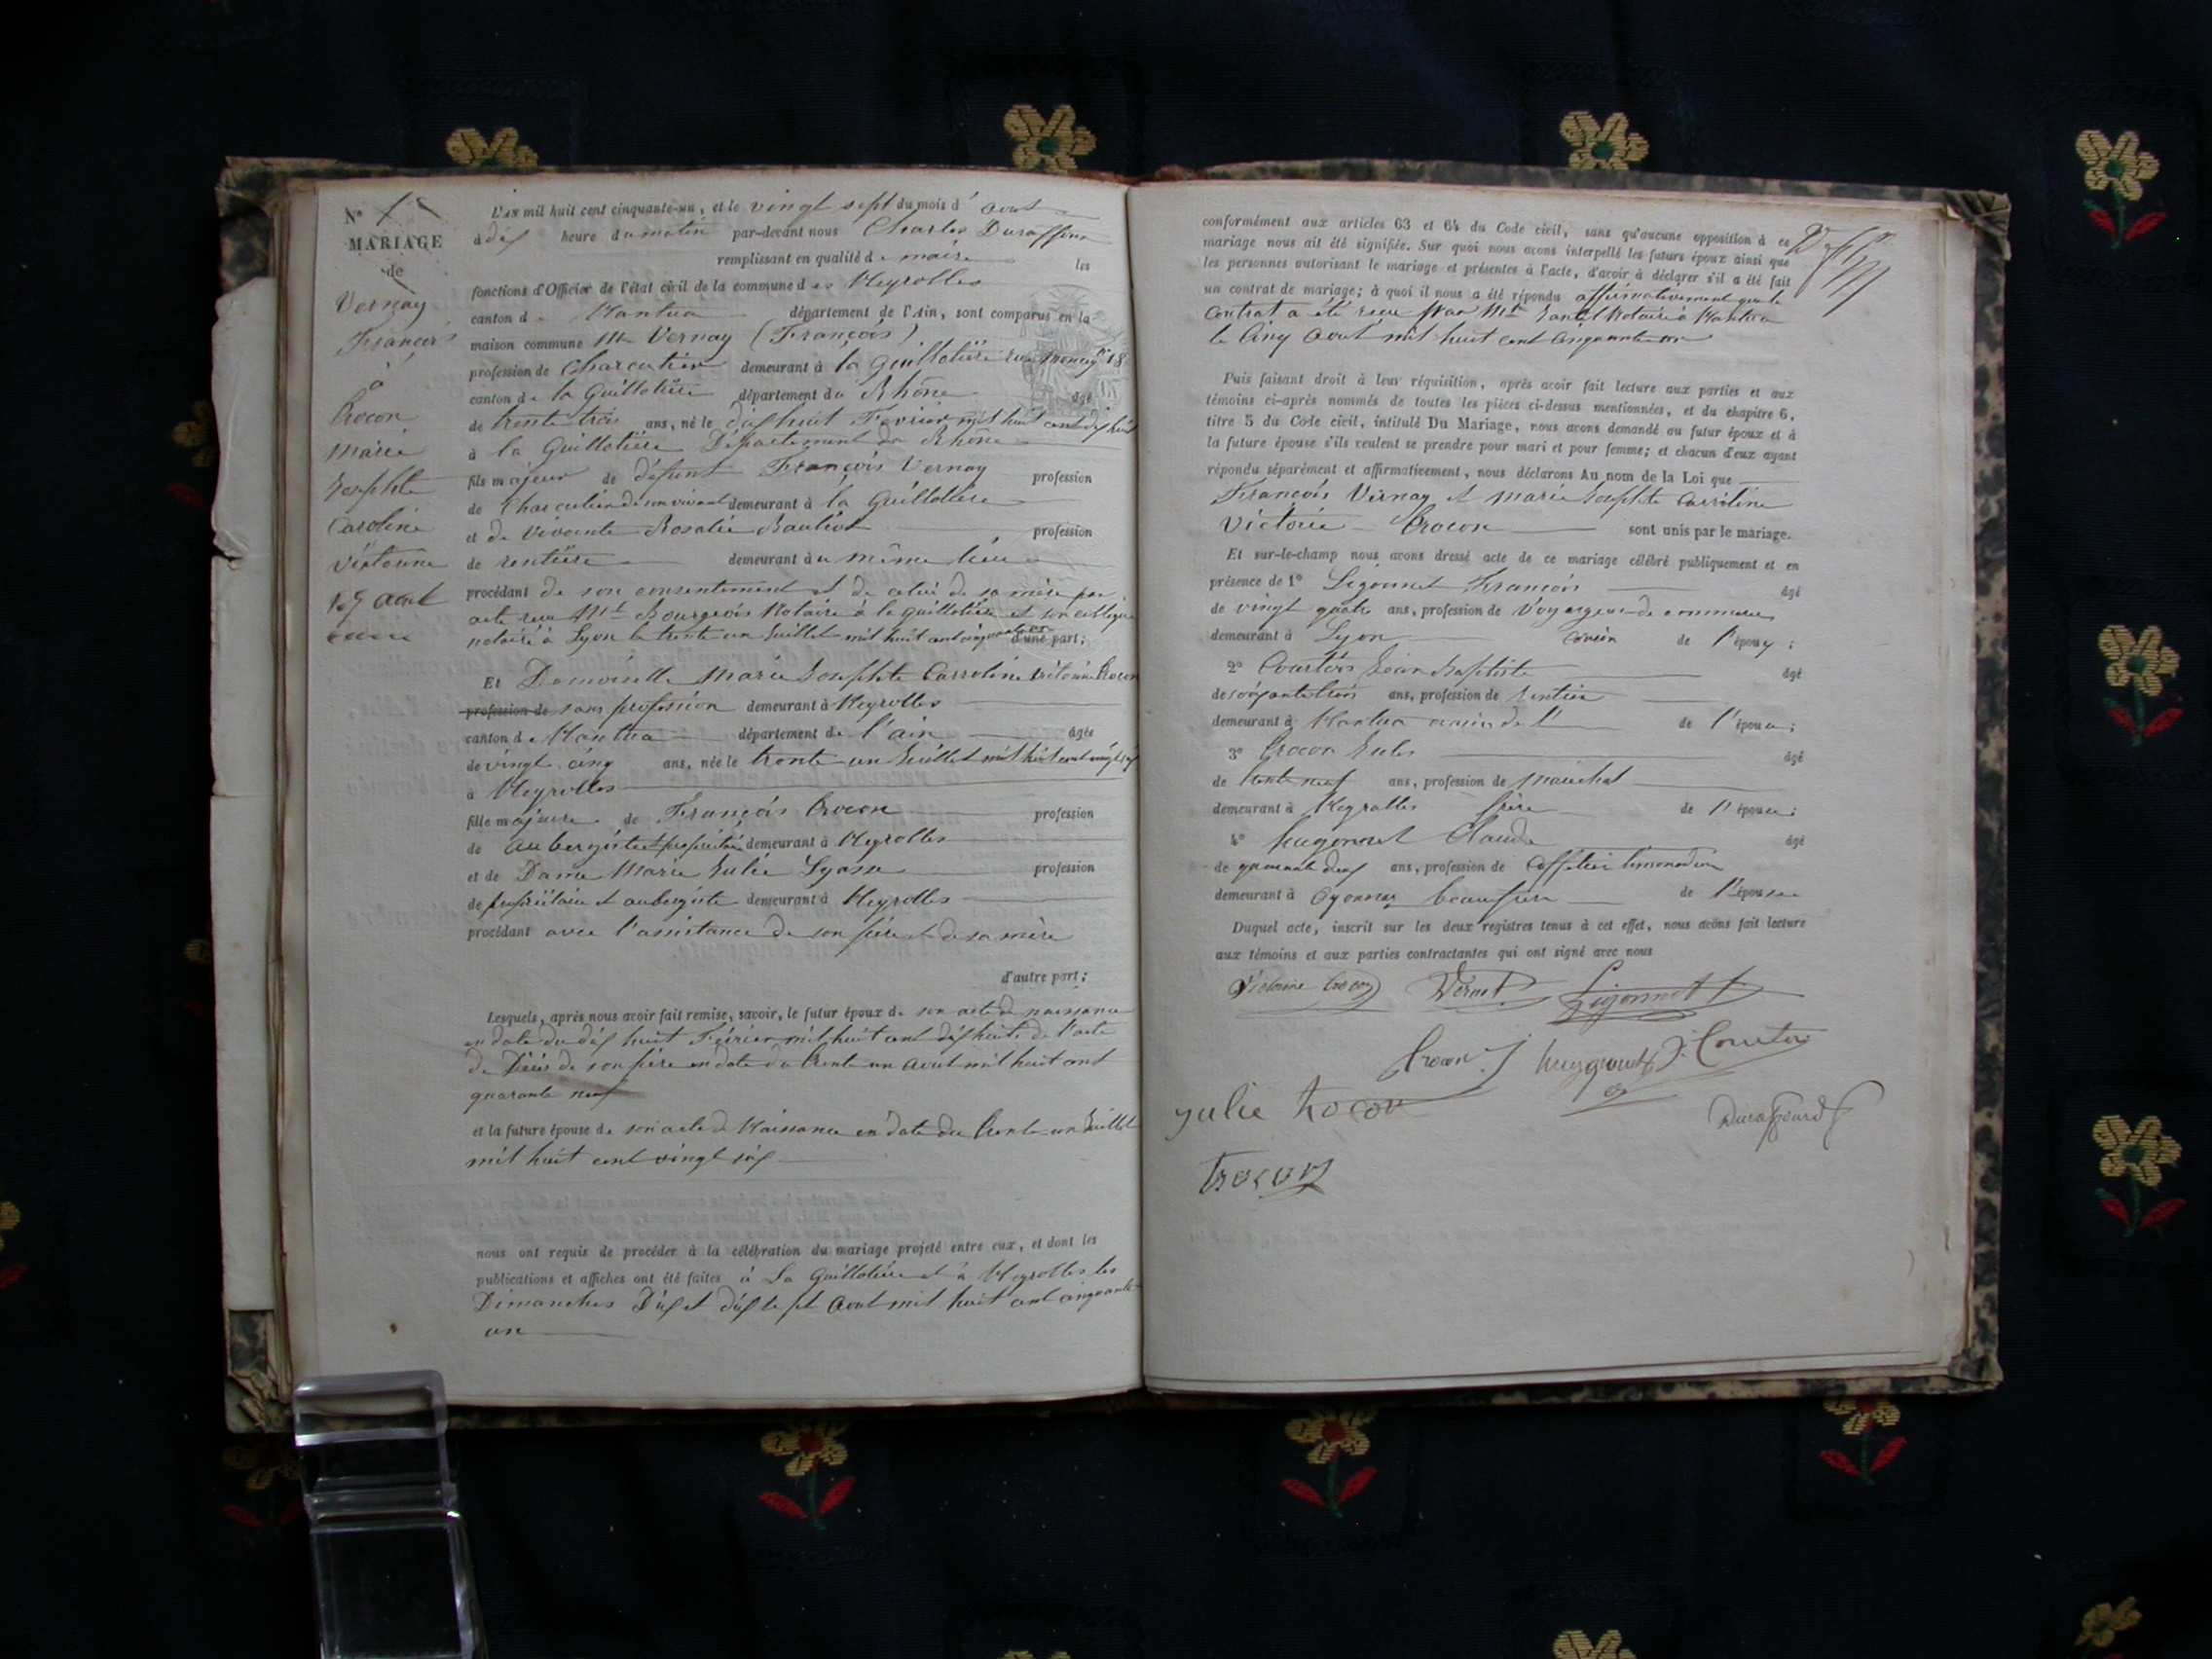 N°
MARIAGE
de
Vernay
François
à
Crocon
Marie
Josephte
Caroline
Victorine
27 aout
L'AN mil huit cent cinquante-un, et le vingt sept du mois d'aout
à dix heure du matin par-devant nous Charles Duraffour
remplissant en qualité de maire les
fonctions d'Officier de l'état civil de la commune de Neyrolles
canton de Nantua département de l'Ain, sont comparus en la
maison commune Mr Vernay (François)
profession de Charcutier demeurant à la Guillotière rue Moncey n° 18
canton de la Guillotière département du Rhône âgé
de trente trois ans, né le dix huit Fevrier mil huit cent dix huit
à la Guillotière Département du Rhône
fils majeur de défunt François Vernay profession
de Charcutier de son vivant demeurant à la Guillotière
et de vivante Rosalie profession
de rentière demeurant au même lieu
procédant de son consentement et de celui de sa mère par
acte reçu Mtre Bourgeois Notaire à la Guillotière et son collègue
notaire à Lyon le trente un Juillet mil huit cent cinquante un d'une part;
Et Demoiselle Marie Josephte Carroline Victorine Crocon
profession de sans profession demeurant à Neyrolles
canton de Nantua département de l'ain âgée
de vingt cinq ans, née le trente un Juillet mil huit cent vingt six
à Neyrolles
fille majeure de François Crocon profession
de aubergiste et propriétaire demeurant à Neyrolles
et de Dame Marie Julie profession
de propriétaire et aubergiste demeurant à Neyrolles
procédant avec l'assistance de son père et de sa mère
d'autre part;
Lesquels, après nous avoir fait remise, savoir, le futur époux de son acte de naissance
en date du dix huit Février mil huit cent dix huit, de l'acte
de Décès de son père en date du trente un aout mil huit cent
quarante neuf
et la future épouse de son acte de Naissance en date du trente un Juillet
mil huit cent vingt six
nous ont requis de procéder à la célébration du mariage projeté entre eux, et dont les
publications et affiches ont été faites à La Guillotière et à Neyrolles les
Dimanches Dix et dix sept aout mil huit cent cinquante
un
conformément aux articles 63 et 64 du Code civil, sans qu'aucune opposition à ce
mariage nous ait été signifiée. Sur quoi nous avons interpellé les futurs époux ainsi que
les personnes autorisant le mariage et présentes à l'acte, d'avoir à déclarer s'il a été fait
un contrat de mariage; à quoi il nous a été répondu affirmativement que le
contrat a été reçu par Mtre Notaire à Nantua
le Cinq aout mil huit cent cinquante un
Puis faisant droit à leur réquisition, après avoir fait lecture aux parties et aux
témoins ci-après nommés de toutes les pièces ci-dessus mentionnées, et du chapitre 6,
titre 5 du Code civil, intitulé Du Mariage, nous avons demandé au futur époux et à
la future épouse s'ils veulent se prendre pour mari et pour femme; et chacun d'eux ayant
répondu séparément et affirmativement, nous déclarons Au nom de la Loi que
François Vernay et Marie Josephte Carroline
Victorine Crocon sont unis par le mariage.
Et sur-le-champ nous avons dressé acte de ce mariage célébré publiquement et en
présence de 1° Ligonnet François âgé
de vingt quatre ans, profession de Voyageur de commerce
demeurant à Lyon cousin de l'époux;
2° Courtois Jean Baptiste âgé
de soixante trois ans, profession de rentier
demeurant à Nantua de l'épouse;
3° Crocon Jules âgé
de trente neuf ans, profession de
demeurant à Neyrolles frère de l'épouse;
4° Hugonnet Claude âgé
de quarante deux ans, profession de Caffetier limonadier
demeurant à Oyonnax beau frère de l'épouse
Duquel acte, inscrit sur les deux registres tenus à cet effet, nous avons fait lecture
aux témoins et aux parties contractantes qui ont signé avec nous
Victorine Crocon Vernay Ligonnet
Crocon J Courtois
Julie Crocon
Crocon